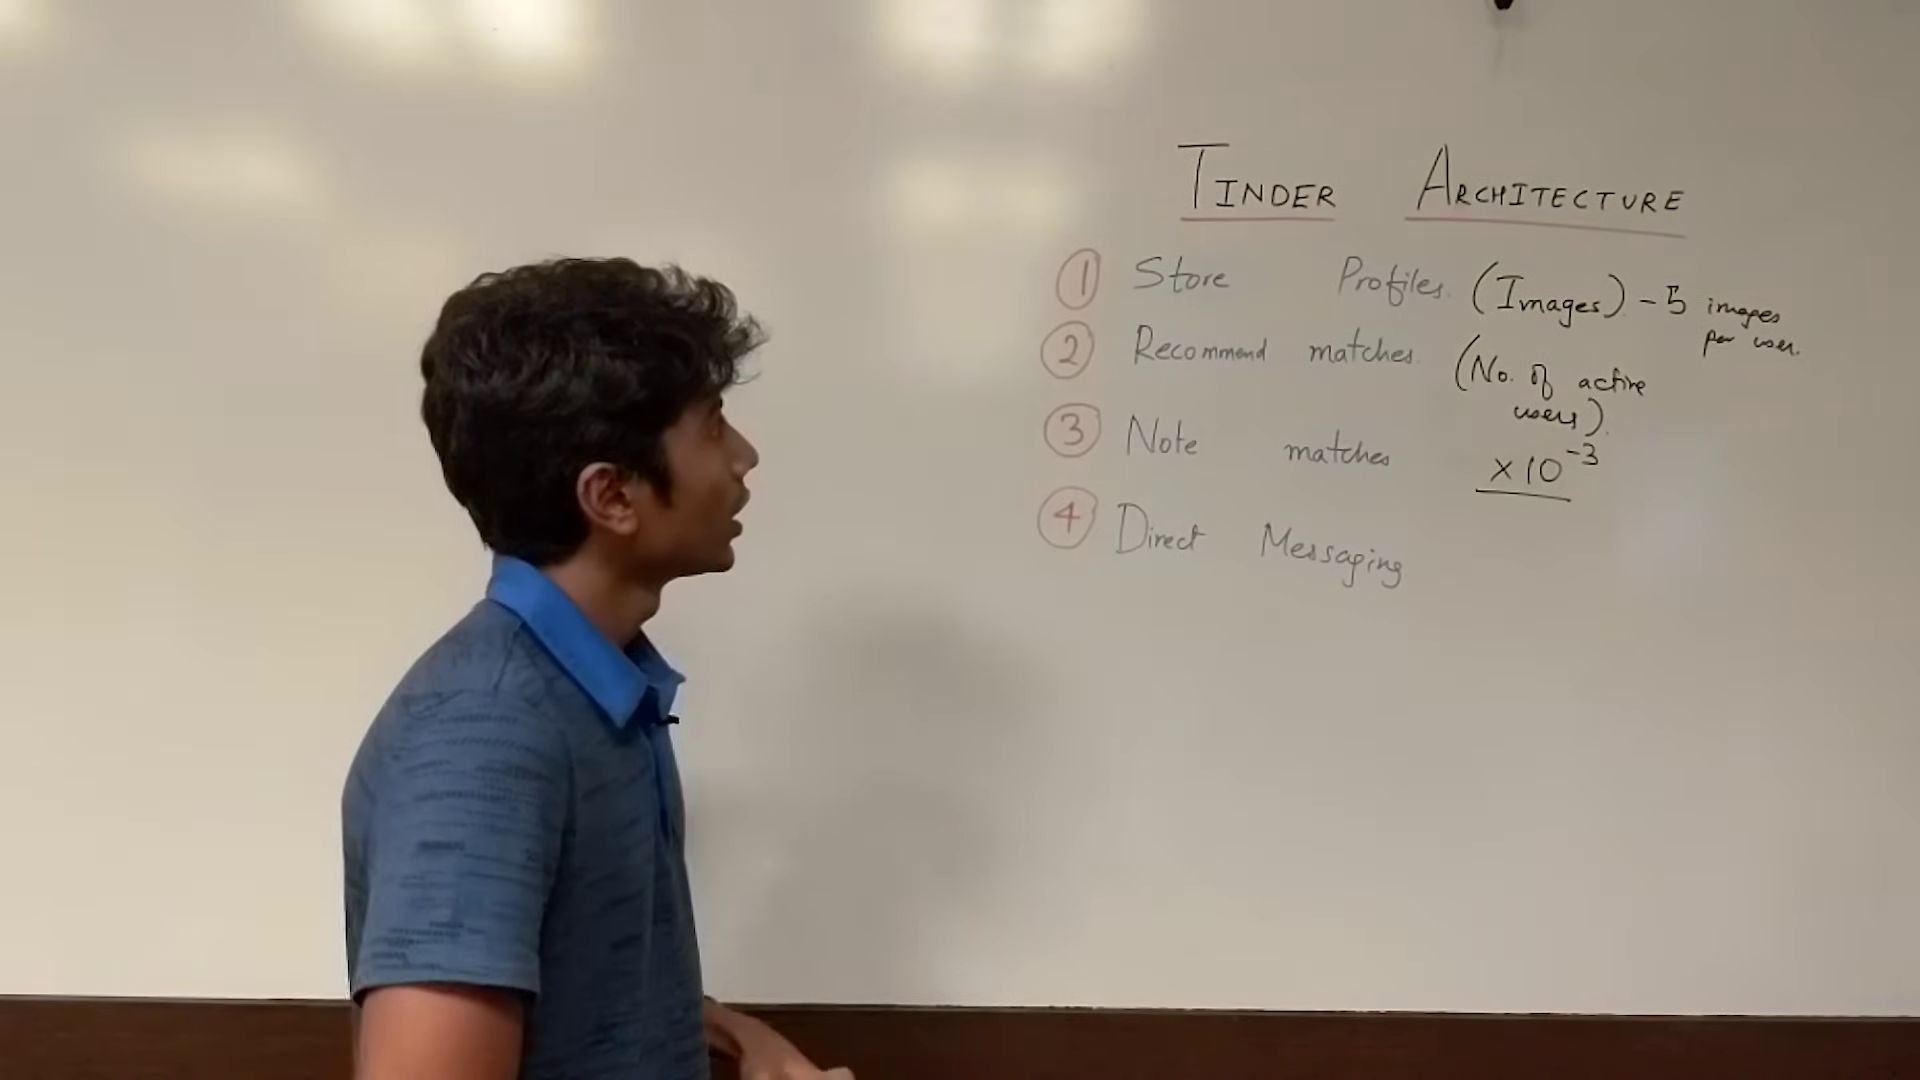 TINDER ARCHITECTURE
1 Store Profiles. (Images). - 5 images per user.
2 Recommend matches. (No. of active users).
3 Note matches × 10⁻³
4 Direct Messaging